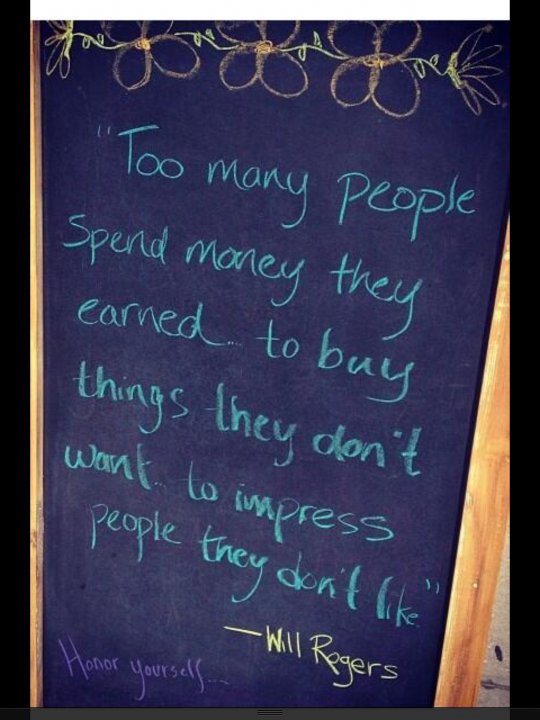 "Too many people
Spend money they
earned.. to buy
things they don't
want.. to impress
people they don't like"
—Will Rogers
Honor yourself...